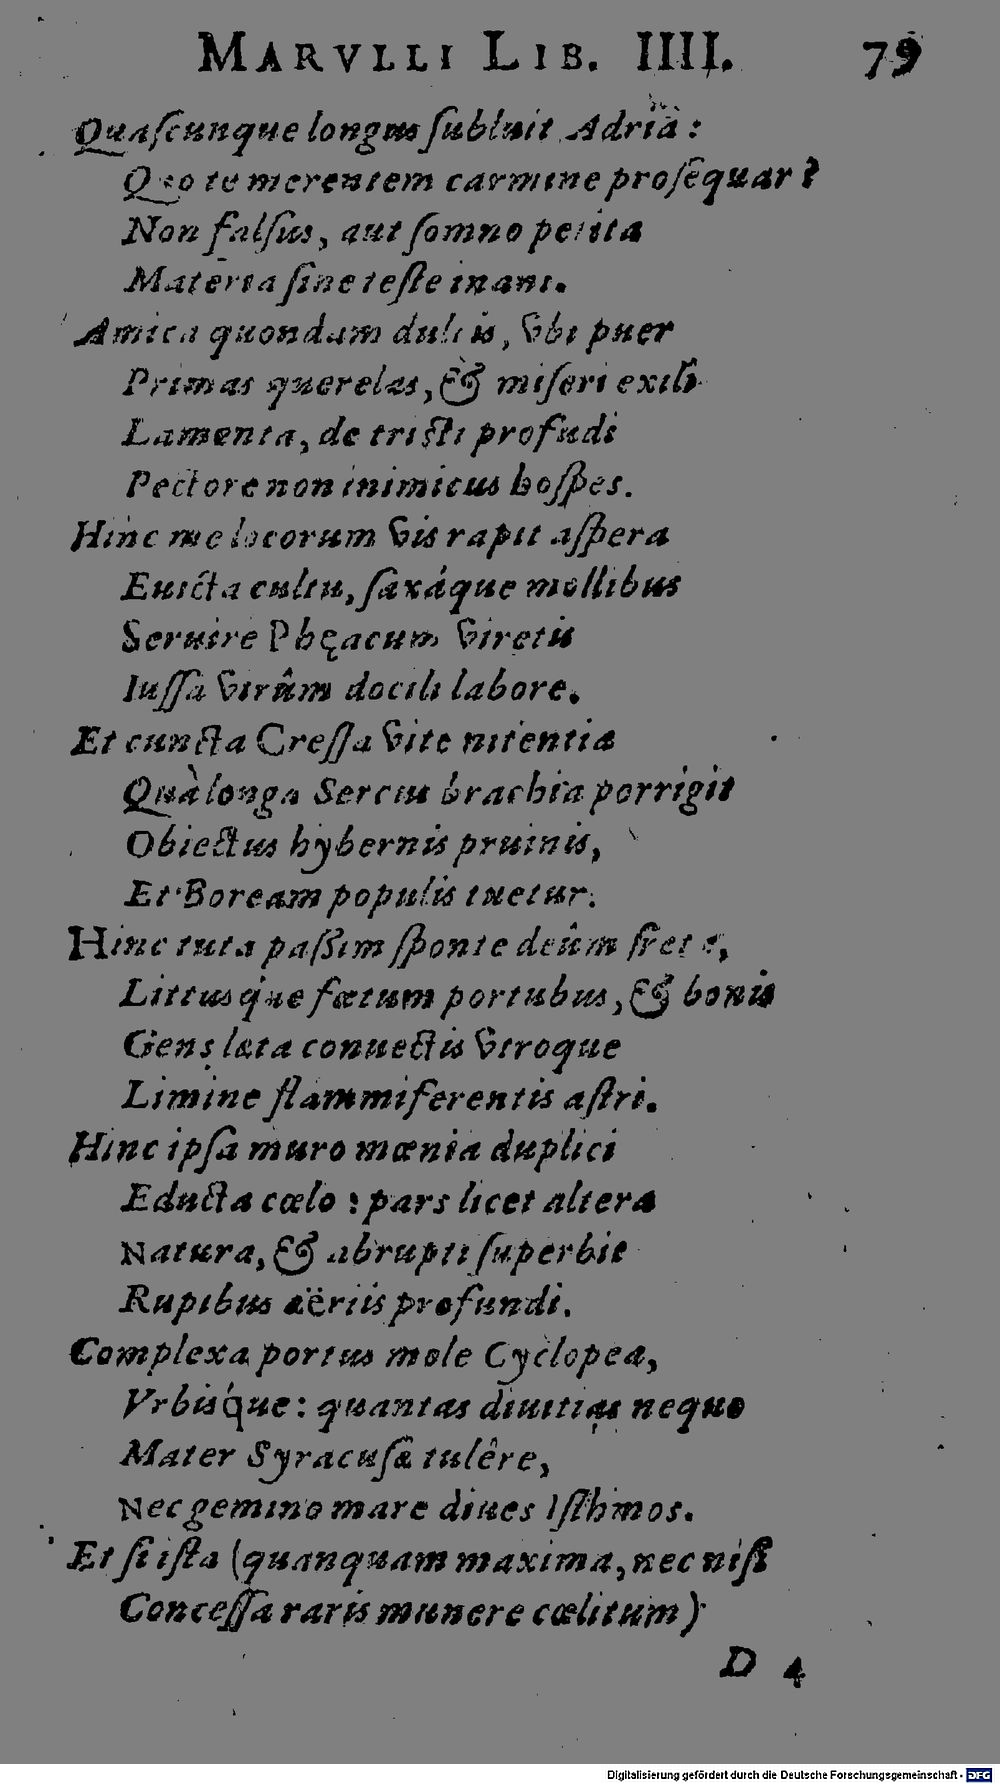 MARVLLI LIB. IIII. 79
Quascunque longus subluit Adria:
Quo te merentem carmine prosequar?
Non falsus, aut somno petita
Materia sine teste inani.
Amica quondam dulcis, vbi puer
Primas querelas, & miseri exilî
Lamenta, de tristi profudi
Pectore non inimicus hospes.
Hinc me locorum vis rapit aspera
Euicta cultu, saxáque mollibus
Seruire Phęacum viretis
Iussa virûm docili labore.
Et cuncta Cressa vite nitentia
Quà longa Sercius brachia porrigit
Obiectus hybernis pruinis,
Et Boream populis tuetur.
Hinc tuta passim sponte deûm freta,
Littusq́ue fœtum portubus, & bonis
Gens læta conuectis vtroque
Limine flammiferentis astri.
Hinc ipsa muro mœnia duplici
Educta cœlo: pars licet altera
Natura, & abrupti superbit
Rupibus aëriis profundi.
Complexa portus mole Cyclopea,
Vrbisq́ue: quantas diuitias nequo
Mater Syracusæ tulêre,
Nec gemino mare diues Isthmos.
Et si ista (quanquam maxima, nec nisi
Concessa raris munere cœlitum)
D 4
Digitalisierung gefördert durch die Deutsche Forschungsgemeinschaft - DFG